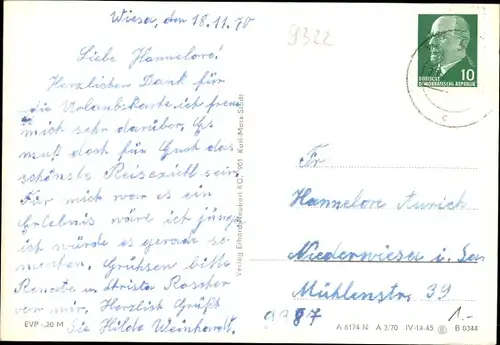 Wiesa, den 18.11.70
9322
Liebe Hannelore!
Herzlichen Dank für
die Urlaubskarte ich freue
mich sehr darüber. Es
muß doch für Euch das
schönste Reiseziehl sein.
Für mich war es ein
Erlebnis wäre ich jünger
ist würde es gerade so
machen. Grüßen bitte
Renate u. Christa Roscher
von mir. Herzlich Grüßt
Sie Hilde Weinhardt.
EVP -,20 M
Verlag Erhard Neubert KG, 901 Karl-Marx-Stadt
10
DEUTSCHE
DEMOKRATISCHE REPUBLIK
Fr
Hannelore Aurich
Niederwiesa i. Sa.
Mühlenstr. 39
87
1.-
A 6174 N A 3/70 IV-14-45 B 6044